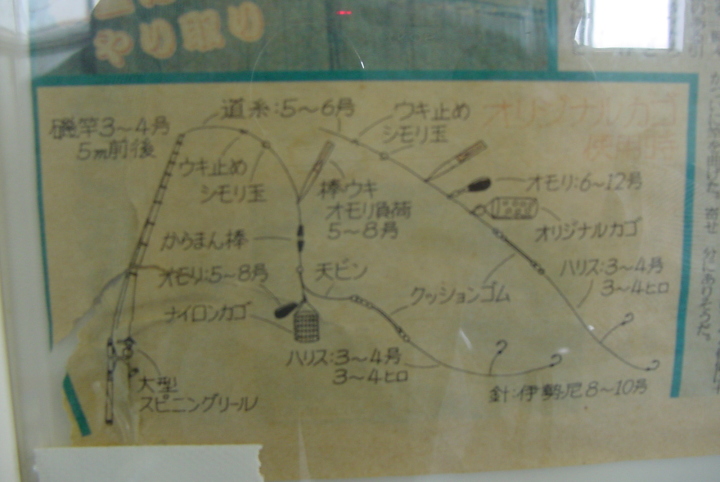 やり取り
オリジナルカゴ
磯竿3〜4号
5m前後
道糸:5〜6号
ウキ止め
シモリ玉
ウキ止め
シモリ玉
棒ウキ
オモリ負荷
5〜8号
オモリ:6〜12号
オリジナルカゴ
からまん棒
オモリ:5〜8号
天ビン
クッションゴム
ハリス:3〜4号
3〜4ヒロ
ナイロンカゴ
ハリス:3〜4号
3〜4ヒロ
大型
スピニングリール
針:伊勢尼8〜10号